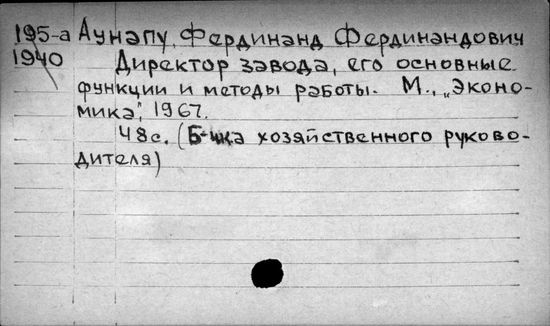 195-а Аунапу, Фердинанд Фердинандович
1940 Директор завода, его основные
функции и методы работы. М., „Эконо-
мика", 1967.
48с. (Б-чка хозяйственного руково-
дителя)